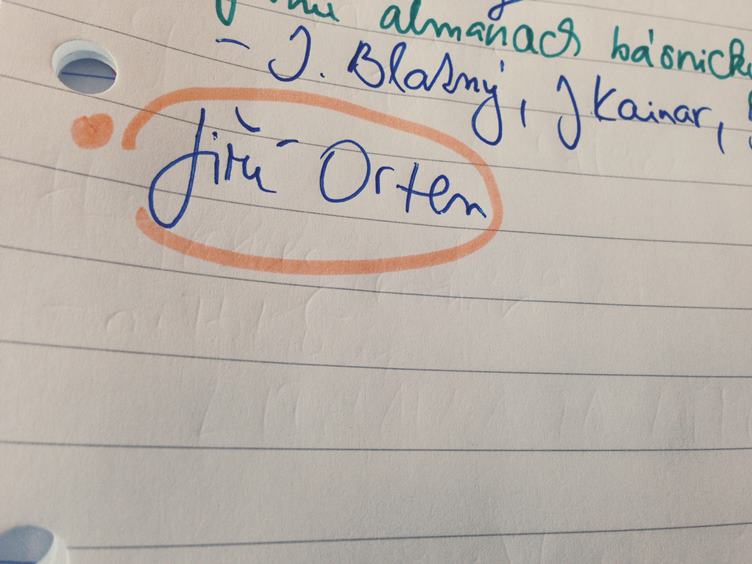 almanach básnick
- J. Blatný, J Kainar,
Jiří Orten